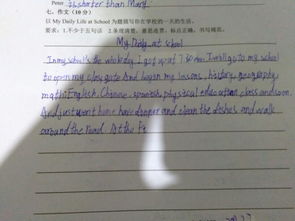 Peter is shorter than Mary.
七、作文（10分）
以 My Daily Life at School 为题描写你在学校的一天的生活。
要求：1.不少于五句话 2.条理清楚，意思连贯，标点正确，书写规范。
My Daily at school
In my school's the whole day. I got up at 7 to go to my school
to open my class gate And began my lessons, history, geography,
math, English, Chinese, spanish, physical education class and soon.
And just went home have dinner and clean the dishes and walk
around the road. At the